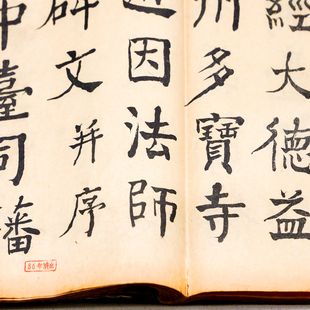 經大德益
州多寶寺
道因法師
碑文并序
中臺司藩